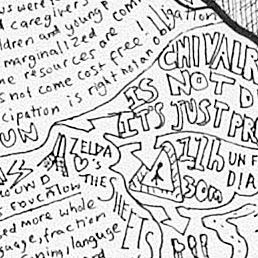 caregivers
dren and young p
marginalized com
me resources are
s not come cost free!
cipation is right not an obligation
CHIVALR
IS NOT D
IT'S JUST PR
UN
ZELDA
'S
THE
SHEETS
11h UNF
30m DIA
OUND
EDUCATION
ed more whole
guage, fraction
ning, language